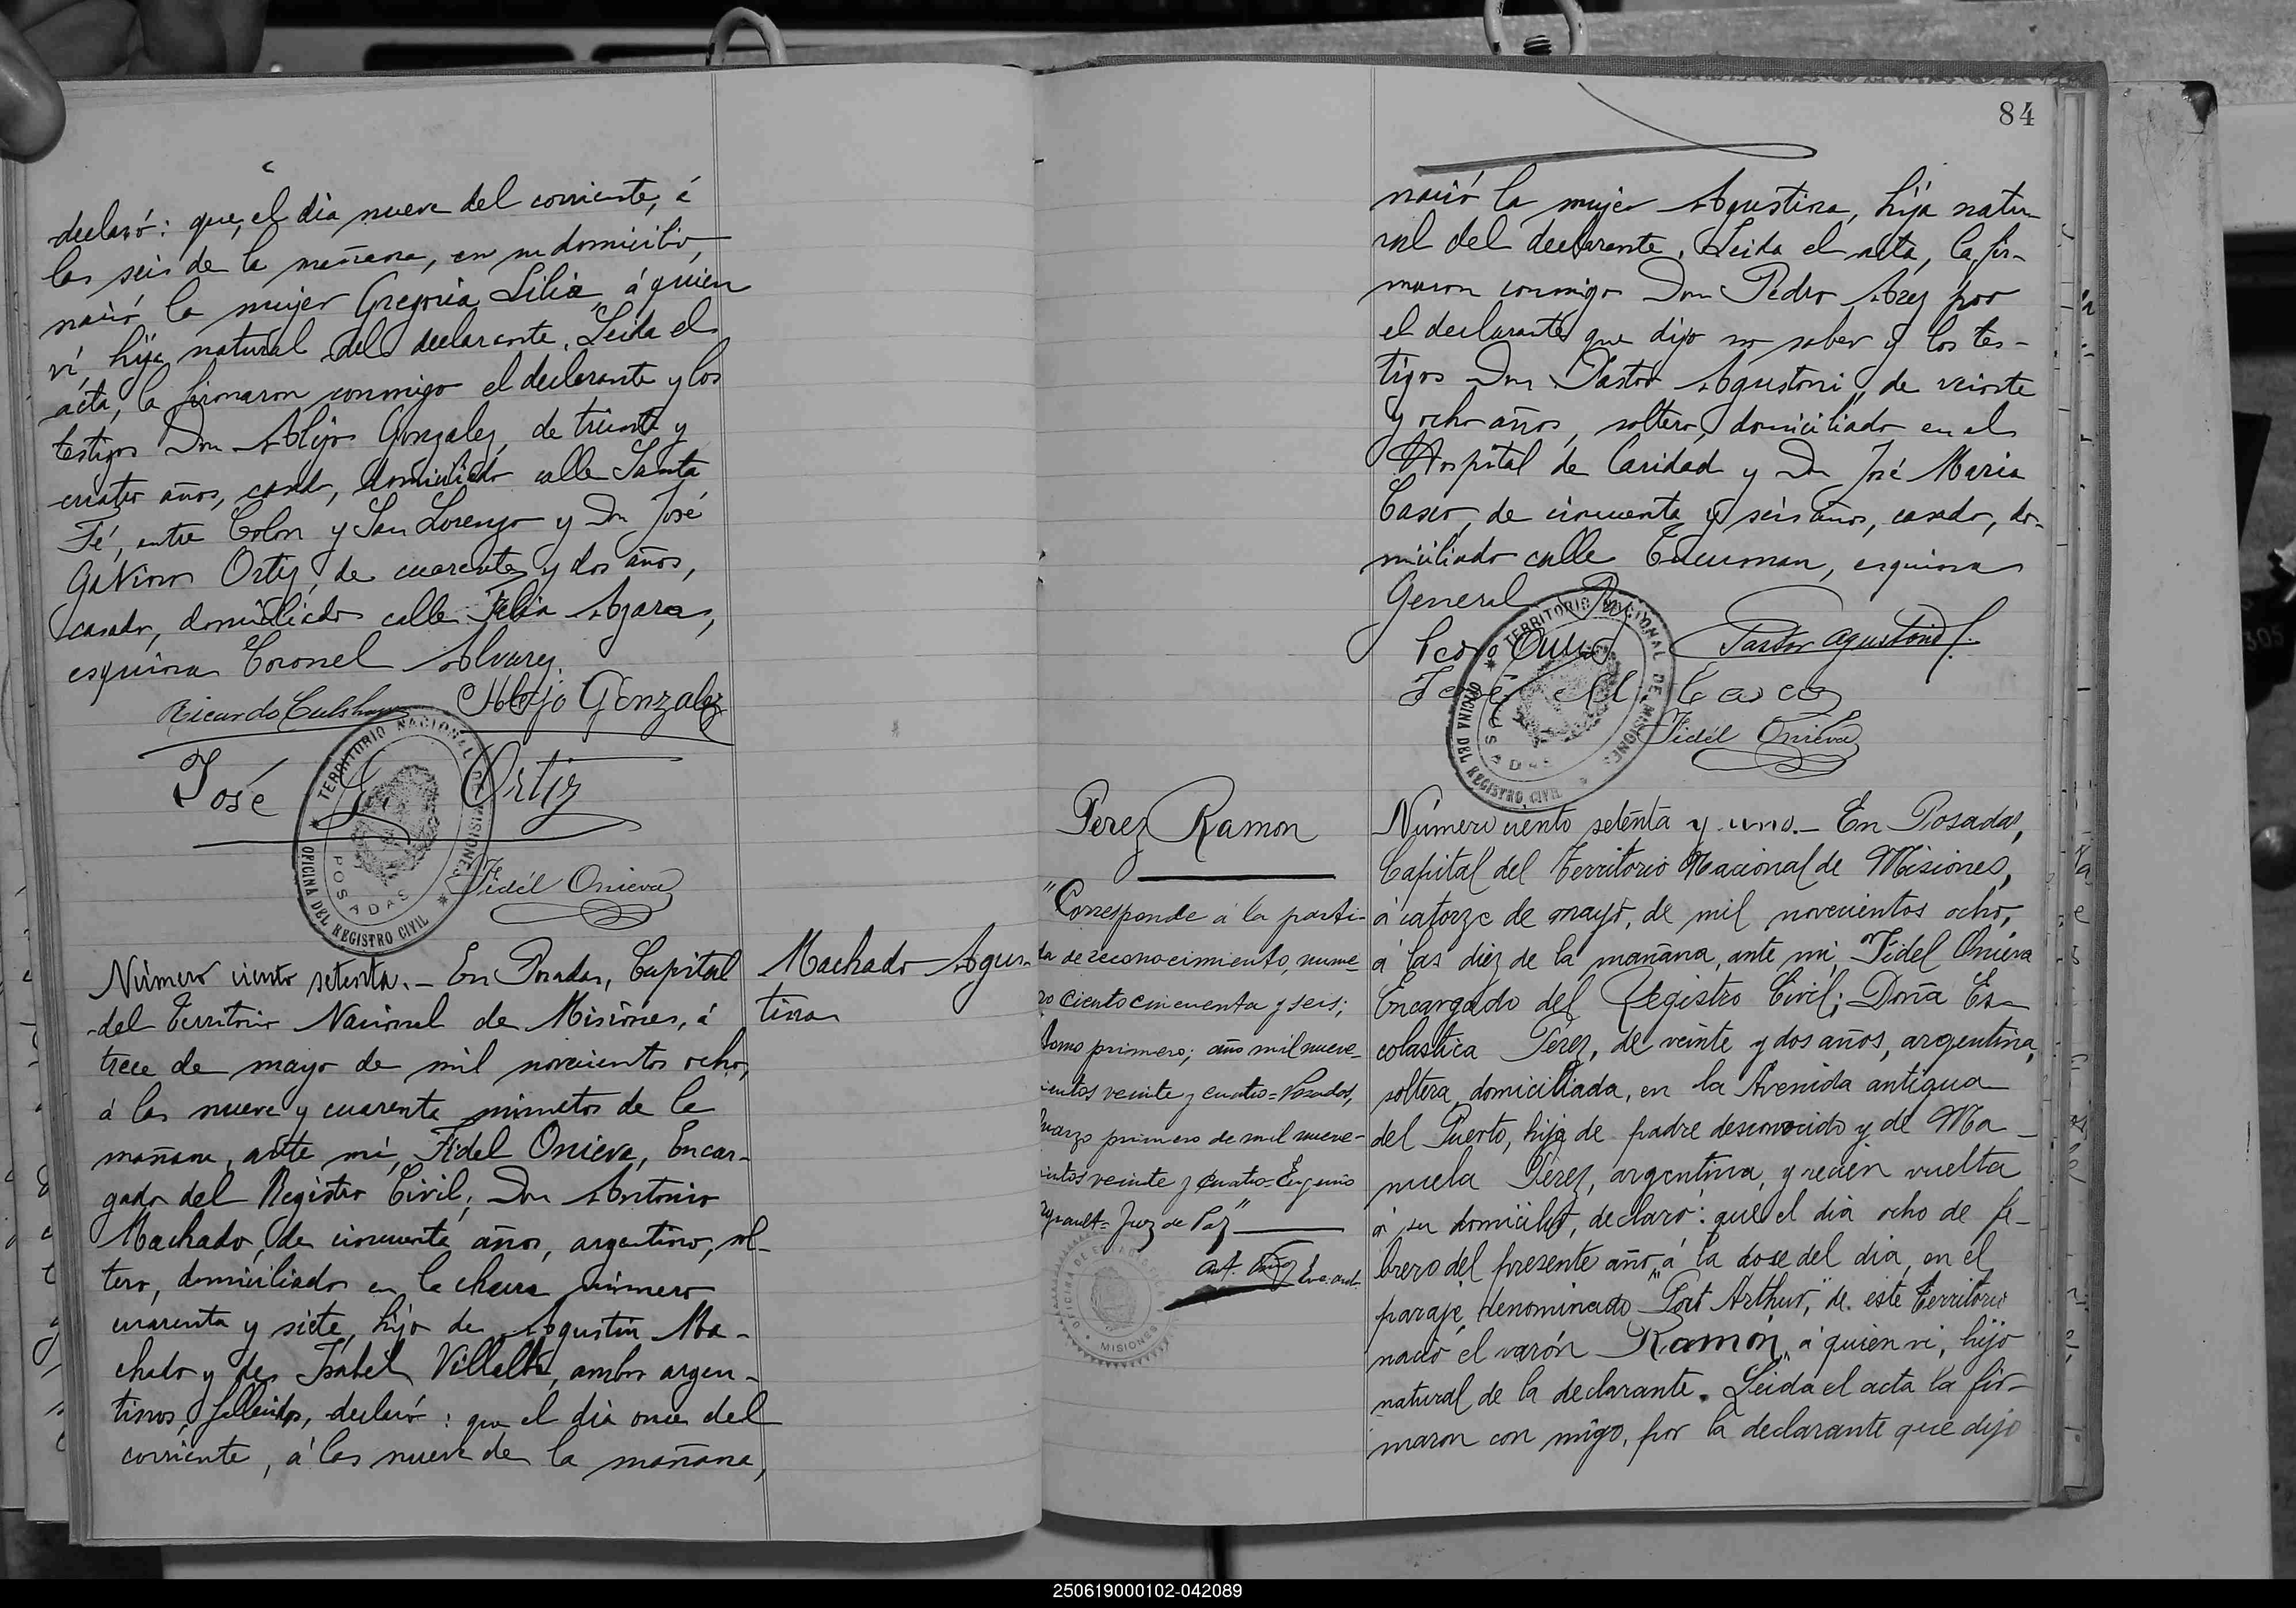 declaró: que, el dia nueve del corriente, á
las seis de la mañana, en su domicilio,
nació la mujer Gregoria Lilia, á quien
ví, hija natural del declarante. Leida el
acta, la firmaron conmigo el declarante y los
testigos Don Alejo Gonzalez, de treinta y
cuatro años, casado, domiciliado calle Santa
Fé, entre Colon y San Lorenzo y Don José
Gavino Ortiz, de cuarenta y dos años,
casado, domiciliado calle Felix Azara,
esquina Coronel Alvarez.
Ricardo Alejo Gonzalez
José G. Ortiz
TERRITORIO NACIONAL DE MISIONES
OFICINA DEL REGISTRO CIVIL
POSADAS
Fidél Onieva
Machado Agus-
tina
Número ciento setenta.- En Posadas, Capital
del Territorio Nacional de Misiones, á
trece de mayo de mil novecientos ocho,
á las nueve y cuarenta minutos de la
mañana, ante mí, Fidel Onieva, Encar-
gado del Registro Civil; Don Antonio
Machado, de cincuenta años, argentino, sol-
tero, domiciliado en la chacra número
cuarenta y siete, hijo de Agustin Ma-
chado y de Isabel Villalba, ambos argen-
tinos, fallecidos, declaró: que el dia once del
corriente, á las nueve de la mañana,
84
nació la mujer Agustina, hija natu-
ral del declarante. Leida el acta, la fir-
maron conmigo Don Pedro por
el declarante que dijo no saber y los tes-
tigos Don Pastor Agustoni, de veinte
y ocho años, soltero, domiciliado en el
Hospital de Caridad y Don José Maria
Casco, de cincuenta y seis años, casado, do-
miciliado calle Tucuman, esquina
General Paz
Pedro Pastor Agustoni
José M. Casco
TERRITORIO NACIONAL DE MISIONES
OFICINA DEL REGISTRO CIVIL
POSADAS
Fidél Onieva
Perez Ramon
"Corresponde á la parti-
da de reconocimiento, nume-
ro ciento cincuenta y seis;
tomo primero; año mil nueve-
cientos veinte y cuatro=Posadas,
Marzo primero de mil nueve-
cientos veinte y cuatro=Eugenio
Juez de Paz"
MISIONES
Número ciento setenta y uno.- En Posadas,
Capital del Territorio Nacional de Misiones,
á catorze de mayo, de mil novecientos ocho,
á las diez de la mañana, ante mi, Fidel Onieva
Encargado del Registro Civil; Doña Es-
colastica Pérez, de veinte y dos años, argentina,
soltera, domiciliada, en la Avenida antigua
del Puerto, hija de padre desconocido y de Ma-
nuela Pérez, argentina, y recien vuelta
á su domicilio, declaró: que el dia ocho de fe-
brero del presente año, á la dose del dia, en el
paraje, denominado "Port Arthur," de este Territorio
nació el varón Ramón, á quien vi, hijo
natural de la declarante. Leida el acta la fir-
maron con migo, por la declarante que dijo
250619000102-042089